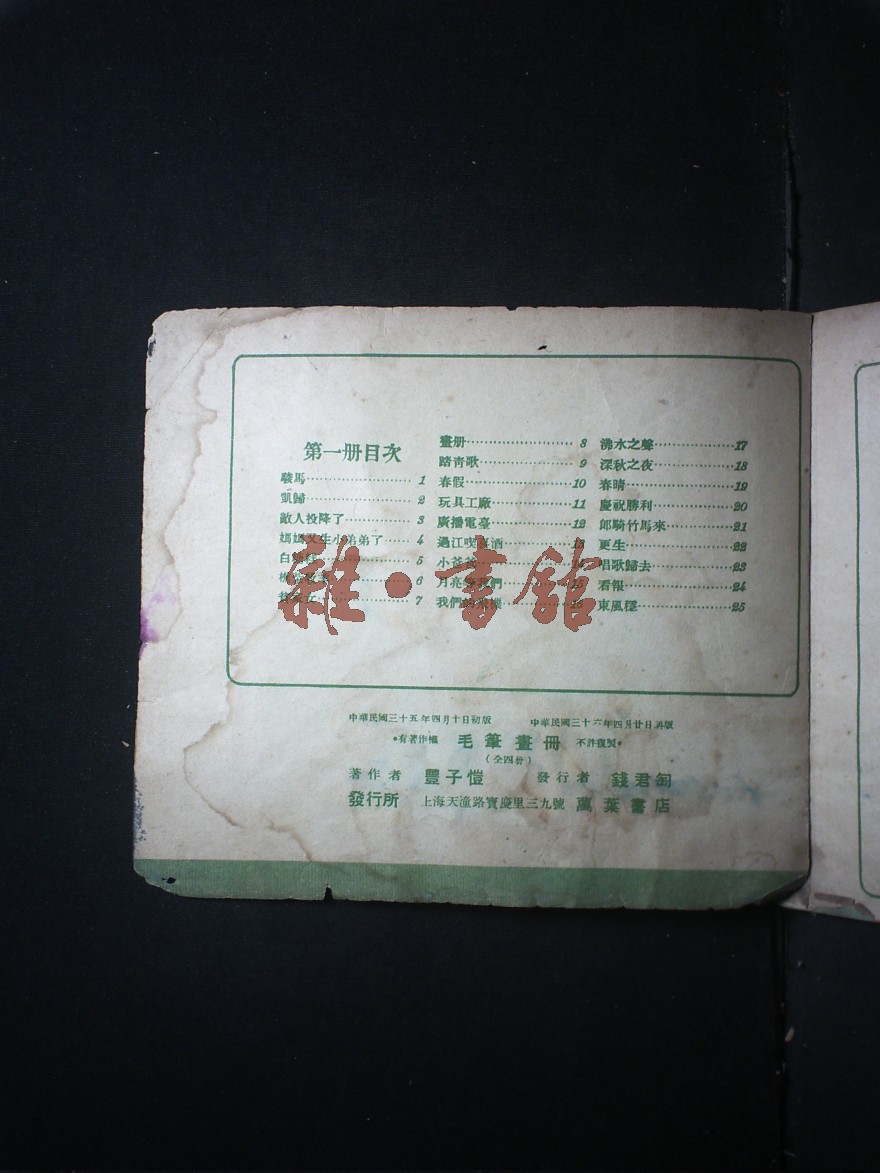 第一册目次
駿馬 1
凱歸 2
敵人投降了 3
媽媽又生小弟弟了 4
白 5
6
女 7
畫册 8
踏青歌 9
春假 10
玩具工廠 11
廣播電臺 12
過江喫喜酒 13
小爸爸 14
月亮 我們 15
我們的 16
沸水之聲 17
深秋之夜 18
春晴 19
慶祝勝利 20
郎騎竹馬來 21
更生 22
唱歌歸去 23
看報 24
東風穩 25
雜·書館
中華民國三十五年四月十日初版 中華民國三十六年四月廿日再版
•有著作權 毛筆畫冊 不許復製•
(全四册)
著作者 豐子愷 發行者 錢君匋
發行所 上海天潼路寶慶里三九號 萬葉書店